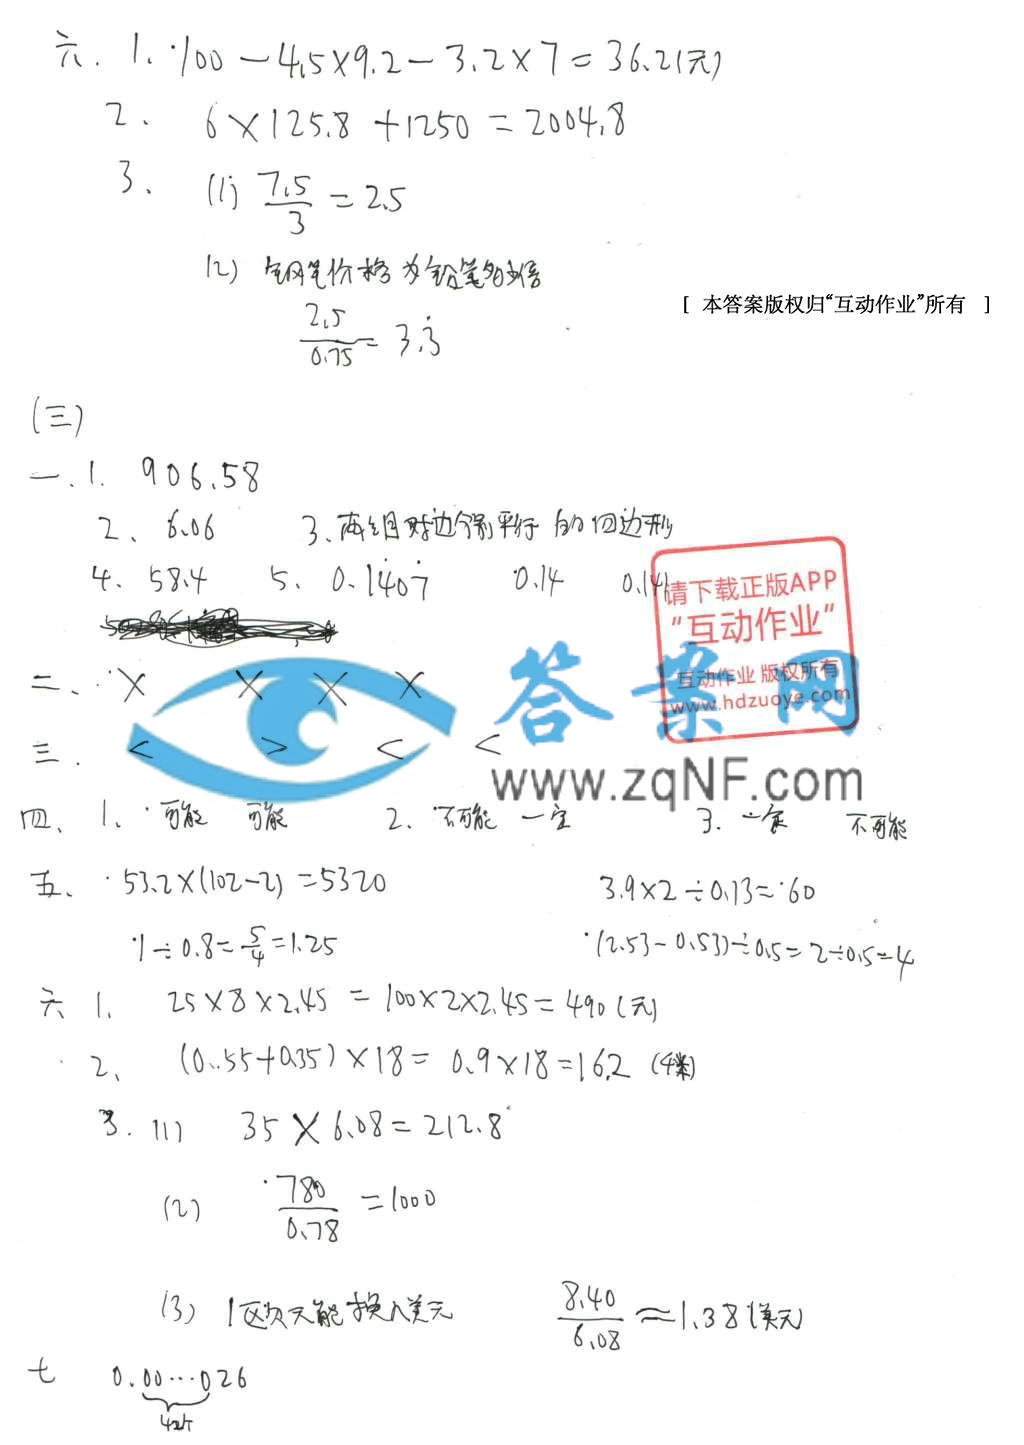 六. 1. 100-4.5×9.2-3.2×7=36.2(元)
2. 6×125.8+1250=2004.8
3. (1) 7.5/3=2.5
(2) 钢笔价格为铅笔多少倍
[ 本答案版权归“互动作业”所有 ]
2.5/0.75=3.3̇
(三)
一.1. 906.58
2、6.06 3.两组对边分别平行的四边形
4. 58.4 5. 0.1̇407̇ 0.14 0.141
请下载正版APP
“互动作业”
二、× × × ×
互动作业 版权所有
www.hdzuoye.com
答案网
三. < > < <
www.zqNF.com
四、1. 可能 可能 2. 不可能 一定 3. 一定 不可能
五、53.2×(102-2)=5320 3.9×2÷0.13=60
1÷0.8=5/4=1.25 (2.53-0.53)÷0.5=2÷0.5=4
六 1. 25×8×2.45=100×2×2.45=490(元)
2、(0.55+0.35)×18=0.9×18=16.2(千米)
3. (1) 35×6.08=212.8
(2) 780/0.78=1000
(3) 1欧元能换入美元 8.40/6.08≈1.38(美元)
七 0.00…026
42个